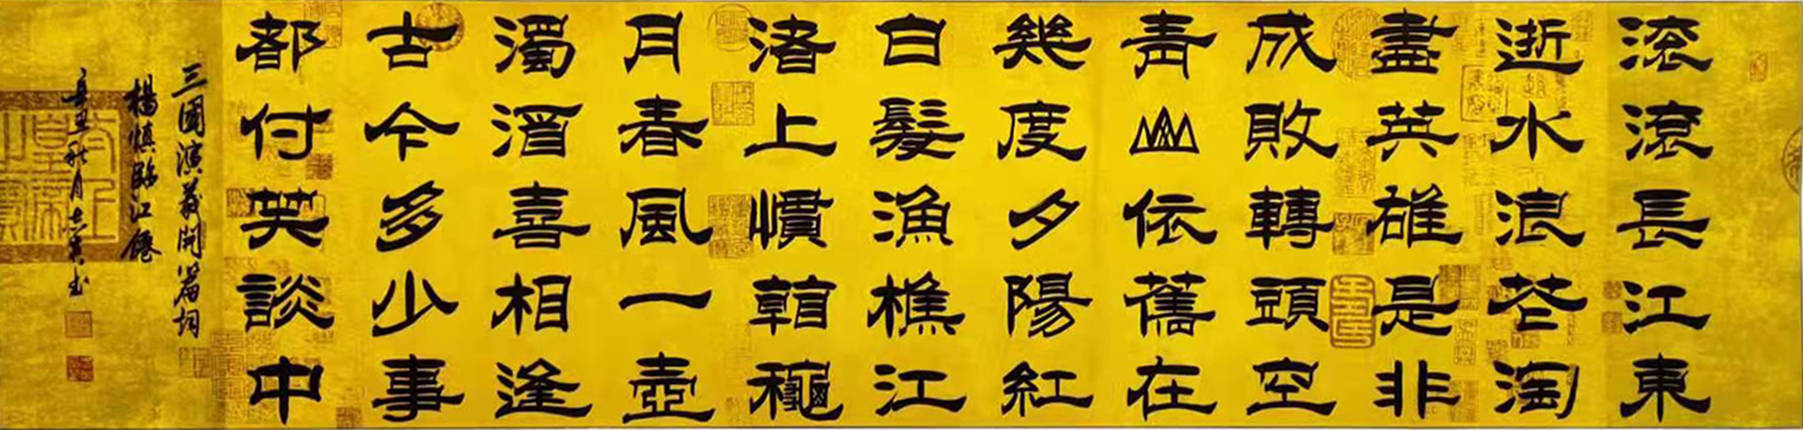 滚滾長江東
逝水浪花淘
盡英雄是非
成敗轉頭空
青山依舊在
幾度夕陽紅
白髮漁樵江
渚上慣看龝
月春風一壺
濁酒喜相逢
古今多少事
都付笑談中
三國演義開篇詞
楊慎臨江僊
辛丑秋月